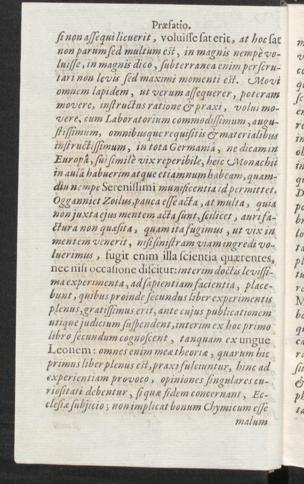 Præfatio.
si non assequi licuerit, voluisse sat erit, at hoc sat
non parum sed multum est, in magnis nempè vo-
luisse, in magnis dico, subterranea enim perscru-
tari non levis sed maximi momenti est. Movi
omnem lapidem, ut verum assequerer, poteram
movere, instructus ratione & praxi, volui mo-
vere, cum Laboratorium commodissimum, augu-
stissimum, omnibusque requisitis & materialibus
instructissimum, in tota Germania, ne dicam in
Europâ, sui simile vix reperibile, heic Monachii
in aula habuerim atque etiamnum habeam, quam-
diu nempe Serenissimi munificentia id permittet.
Ogganniet Zoilus, pauca esse acta, at multa, quia
non juxta ejus mentem acta sunt, scilicet, aurifa-
ctura non quæsita, quam ita fugimus, ut vix in
mentem venerit, nisi sinistram viam ingredi vo-
luerimus, fugit enim illa scientia quærentes,
nec nisi occasione discitur: interim doctis levissi-
ma experimenta, ad sapientiam facientia, place-
bunt, quibus proinde secundus liber experimentis
plenus, gratissimus erit, ante cujus publicationem
utique judicium suspendent, interim ex hoc primo
libro secundum cognoscent, tanquam ex ungue
Leonem: omnes enim meæ theoriæ, quarum hic
primus liber plenus est, praxi fulciuntur, hinc ad
experientiam provoco, opiniones singulares cu-
riositati debentur, si quæ fidem concernant, Ec-
clesiæ subjicio; non implicat bonum Chymicum esse
malum